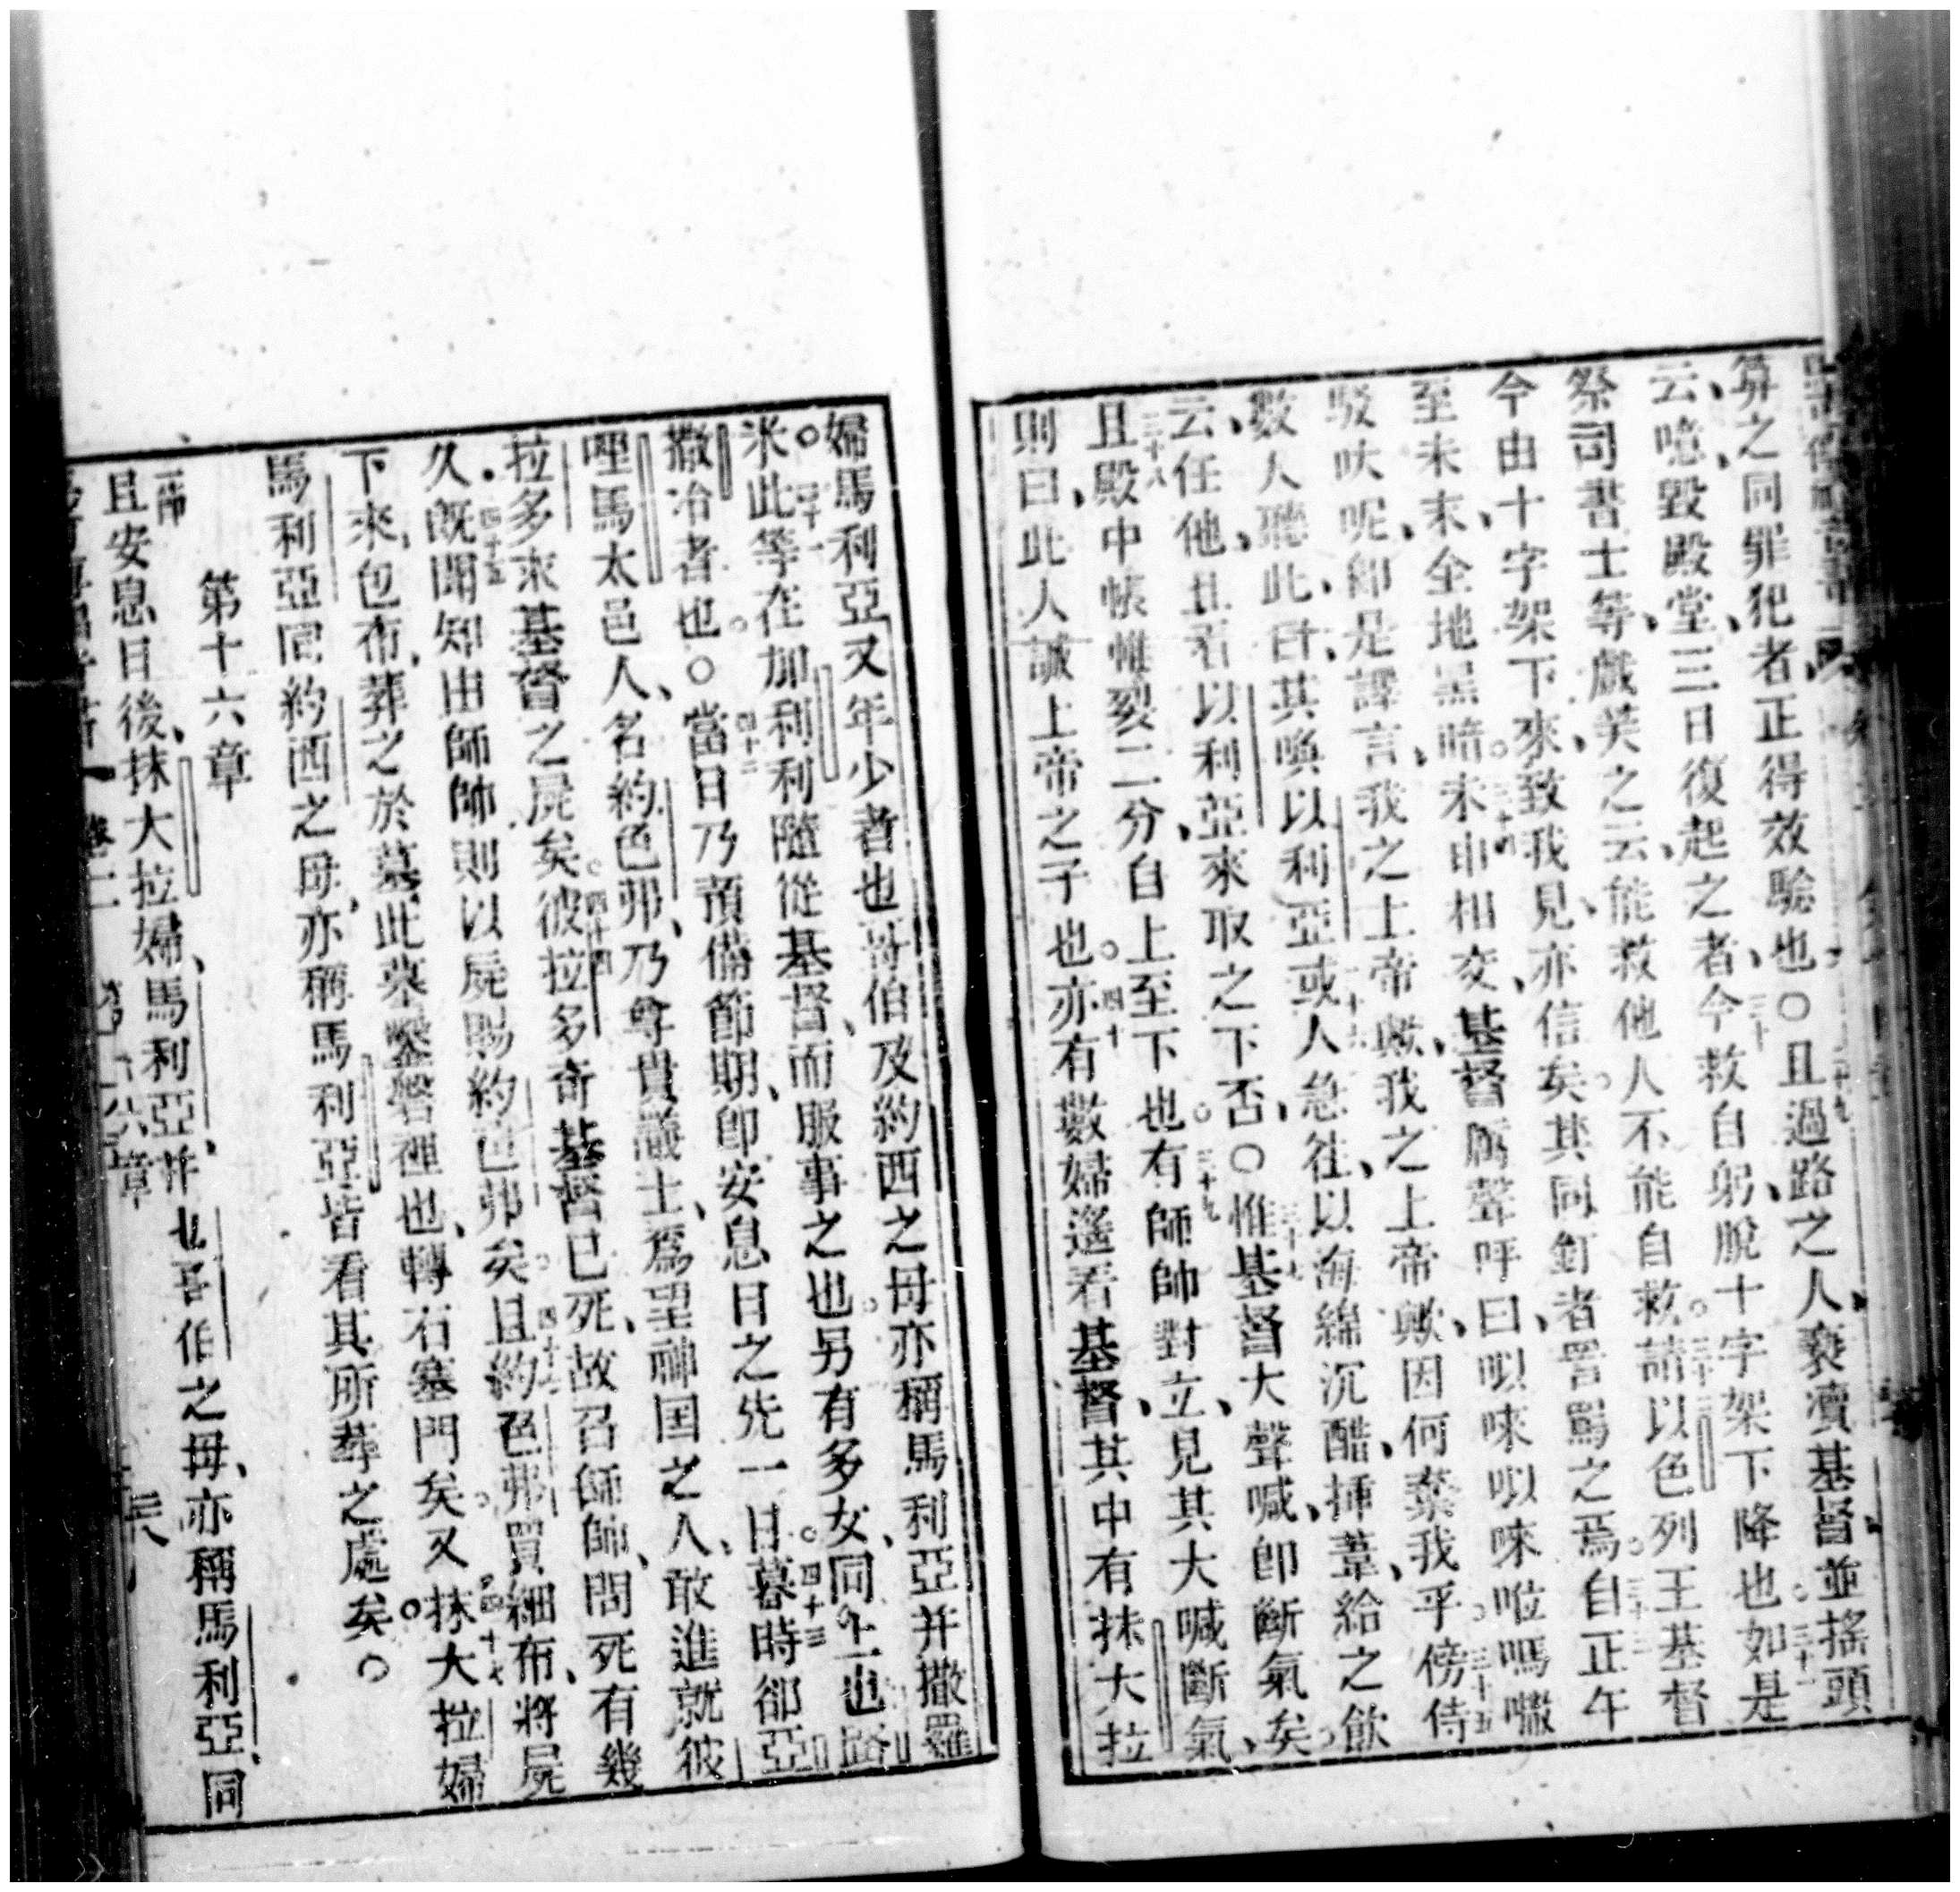 算之同罪犯者正得效驗也〇且過路之人褻瀆基督並搖頭
云噫毀殿堂三日復起之者今救自躬脫十字架下降也如是
祭司書士等戲笑之云能救他人不能自救請以色列王基督
今由十字架下來致我見亦信矣其同釘者詈罵之焉自正午
至未末全地黑暗未申相交基督厲聲呼曰㕽唻㕽唻㘉嗎㘔
駁呔呢卽是譯言我之上帝歟我之上帝歟因何棄我乎傍侍
數人聽此曰其喚以利亞或人急往以海綿沉醋揷葦給之飲
云任他且看以利亞來取之下否〇惟基督大聲喊卽斷氣矣
且殿中帳帷裂二分自上至下也有師帥對立見其大喊斷氣
則曰此人誠上帝之子也亦有數婦遙看基督其中有抹大拉
婦馬利亞又年少者也哥伯及約西之母亦稱馬利亞并撒羅
米此等在加利利隨從基督而服事之也另有多女同上也路
撒冷者也〇當日乃預備節期卽安息日之先一日暮時卻亞
哩馬太邑人名約色弗乃尊貴議士爲望神国之人敢進就彼
拉多求基督之屍矣彼拉多奇基督已死故召師帥問死有幾
久旣聞知由師帥則以屍賜約色弗矣且約色弗買細布將屍
下來包布葬之於墓此墓鑿磐裡也轉石塞門矣又抹大拉婦
馬利亞同約西之母亦稱馬利亞皆看其所葬之處矣〇
第十六章
一節 且安息日後抹大拉婦馬利亞并也哥伯之母亦稱馬利亞同